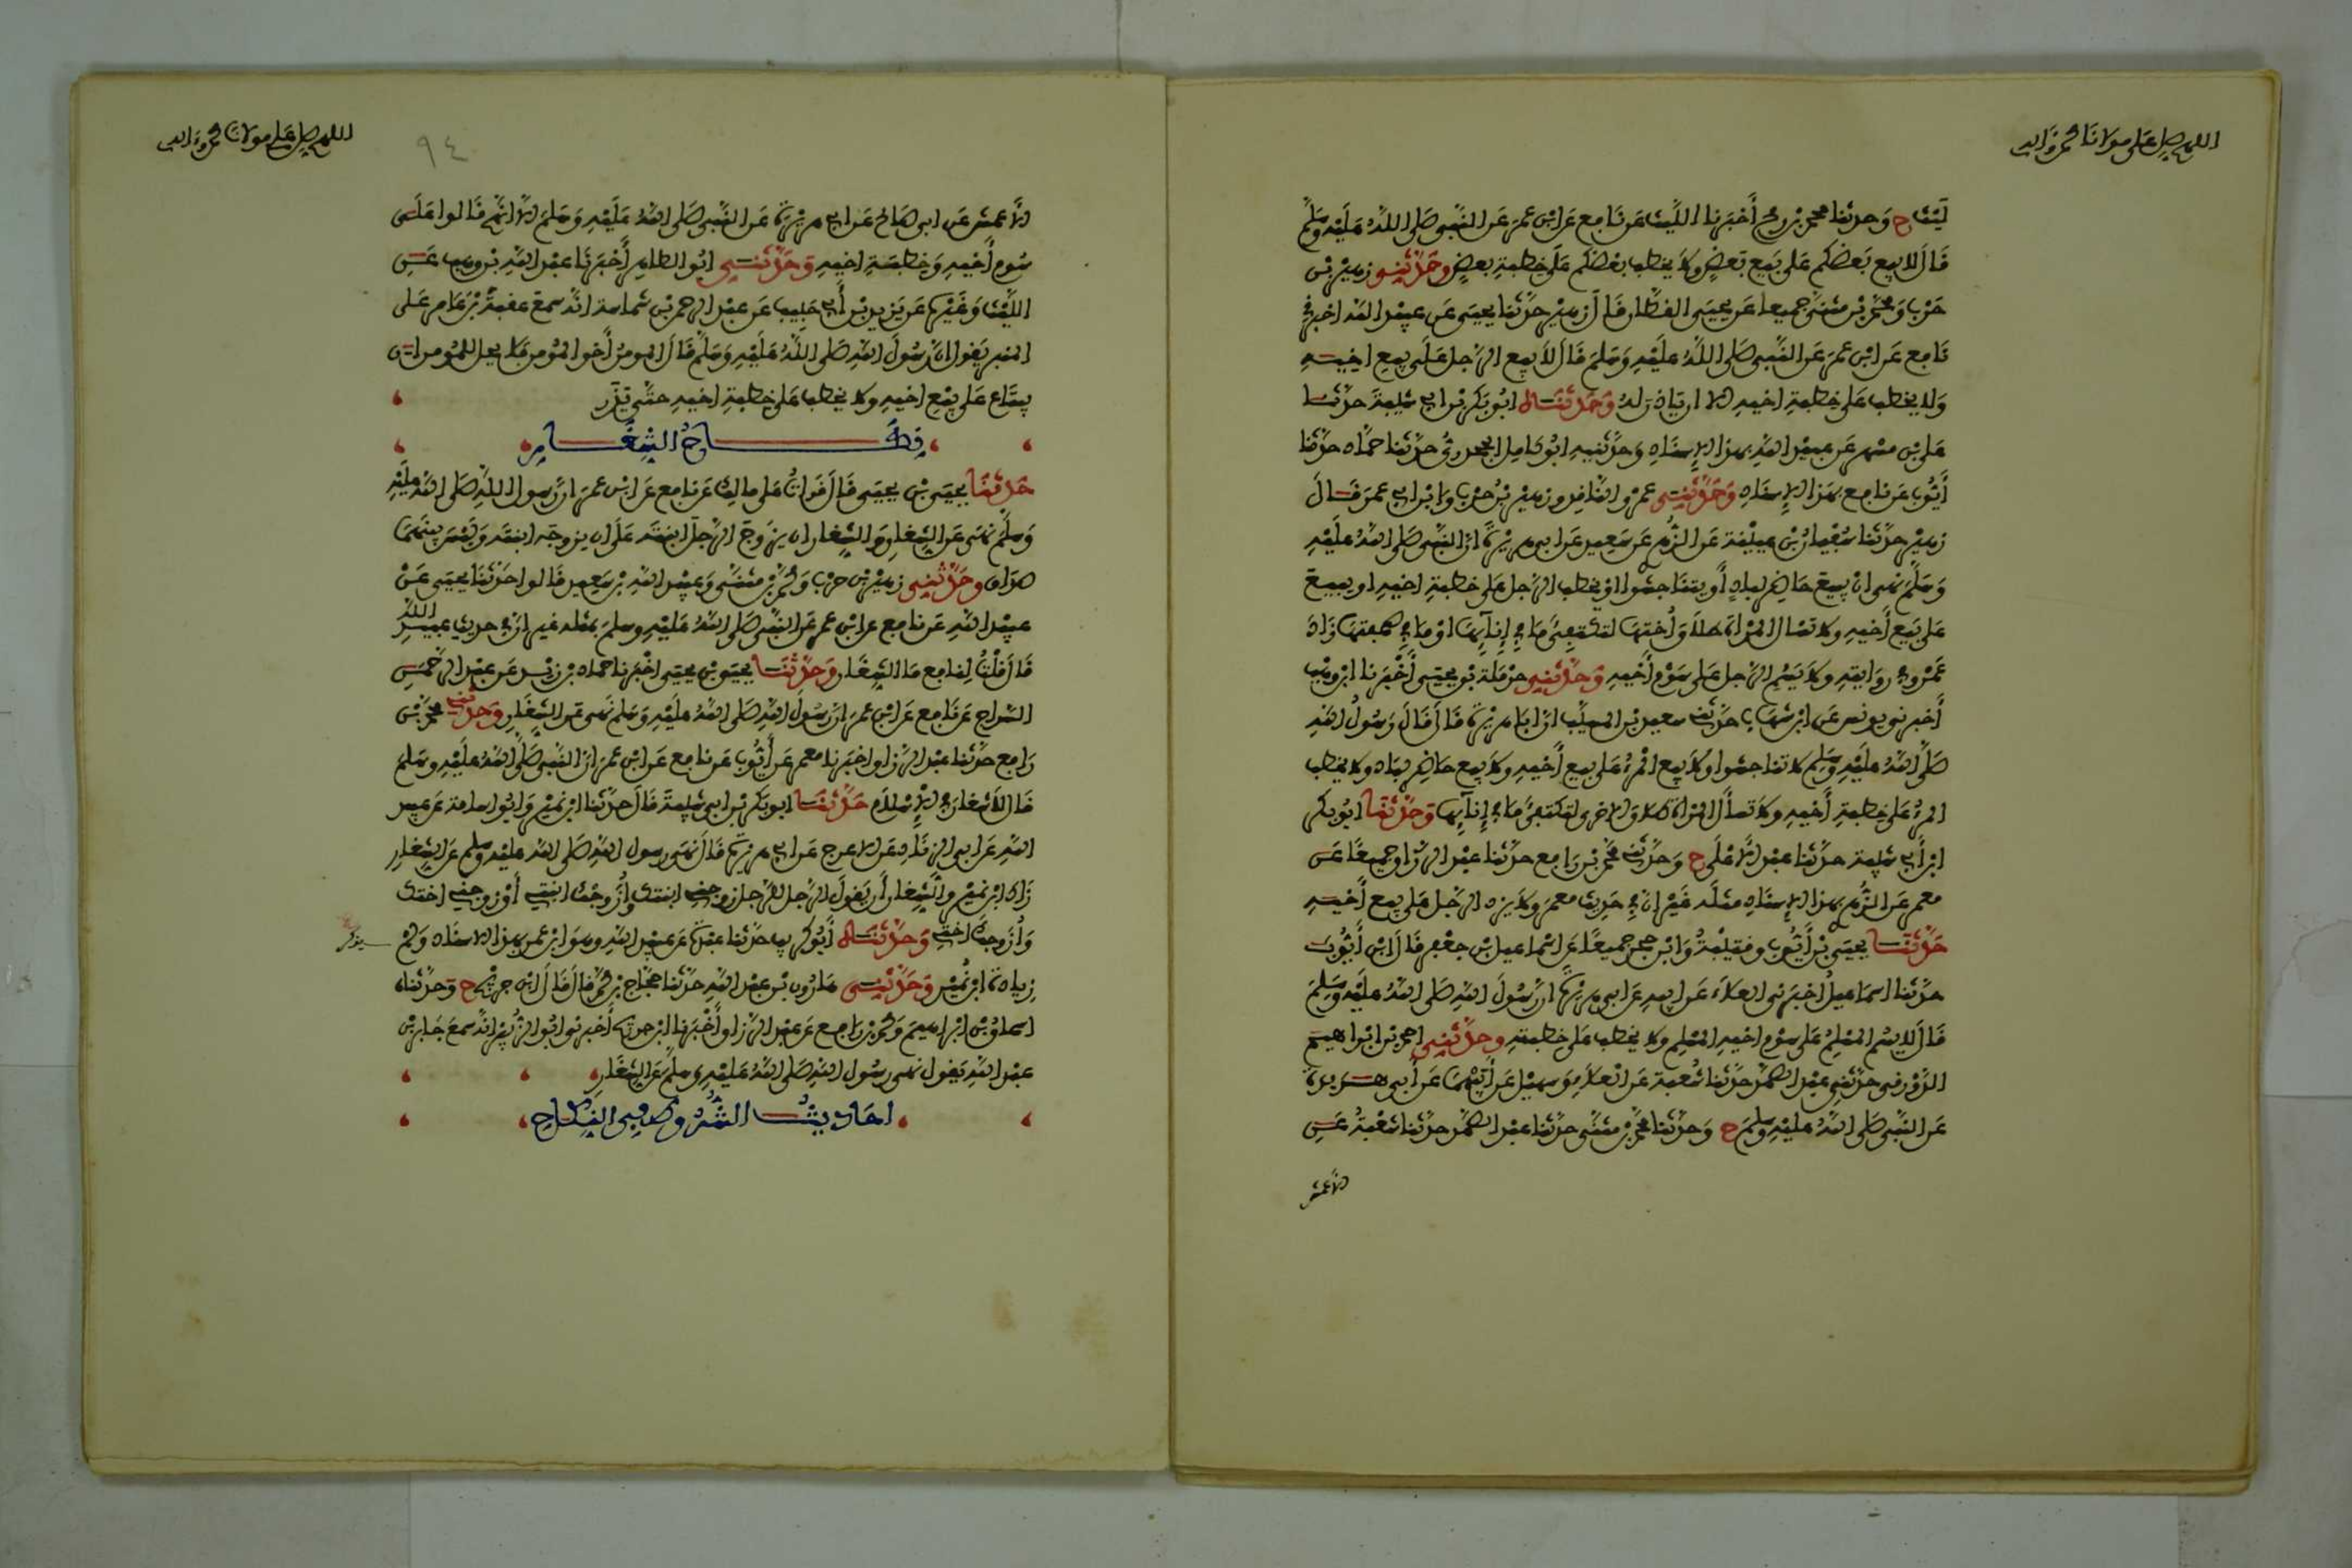 اللهم صل على مولانا محمد وآله
ليث ح وحدثنا محمد بن رمح أخبرنا الليث عن نافع عن ابن عمر عن النبي صلى الله عليه وسلم
قال لا يبع بعضكم على بيع بعض ولا يخطب بعضكم على خطبة بعض وحدثني زهير بن
حرب ومحمد بن مثنى جميعا عن يحيى القطان قال زهير حدثنا يحيى عن عبيد الله اخبرني
نافع عن ابن عمر عن النبي صلى الله عليه وسلم قال لا يبع الرجل على بيع اخيه
ولا يخطب على خطبة اخيه الا ان ياذن له وحدثناه ابو بكر بن ابي شيبة حدثنا
علي بن مسهر عن عبيد الله بهذا الإسناد وحدثنيه ابو كامل الجحدري حدثنا حماد حدثنا
أيوب عن نافع بهذا الإسناد وحدثني عمرو الناقد وزهير بن حرب وابن ابي عمر قال
زهير حدثنا سفيان بن عيينة عن الزهري عن سعيد عن ابي هريرة أن النبي صلى الله عليه
وسلم نهى ان يبيع حاضر لباد أو يتناجشوا او يخطب الرجل على خطبة اخيه او يبيع
على بيع أخيه ولا تسأل المرأة طلاق أختها لتكتفئ ما في إنائها او ما في صحفتها زاد
عمرو في روايته ولا يسم الرجل على سوم أخيه وحدثني حرملة بن يحيى أخبرنا ابن وهب
أخبرني يونس عن ابن شهاب حدثني سعيد بن المسيب ان أبا هريرة قال قال رسول الله
صلى الله عليه وسلم لا تناجشوا ولا يبع المرء على بيع أخيه ولا يبع حاضر لباد ولا يخطب
المرء على خطبة أخيه ولا تسأل المرأة طلاق الاخرى لتكتفئ ما في إنائها وحدثنا ابو بكر
ابن أبي شيبة حدثنا عبد الأعلى ح وحدثني محمد بن رافع حدثنا عبد الرزاق جميعا عن
معمر عن الزهري بهذا الإسناد مثله غير ان في حديث معمر ولا يزد الرجل على بيع أخيه
حدثنا يحيى بن أيوب وقتيبة وابن حجر جميعا عن اسماعيل بن جعفر قال ابن أيوب
حدثنا اسماعيل أخبرني العلاء عن ابيه عن ابي هريرة أن رسول الله صلى الله عليه وسلم
قال لا يسم المسلم على سوم اخيه المسلم ولا يخطب على خطبته وحدثني احمد بن ابراهيم
الدورقي حدثني عبد الصمد حدثنا شعبة عن العلاء وسهيل عن أبيهما عن أبي هريرة
عن النبي صلى الله عليه وسلم ح وحدثنا محمد بن مثنى حدثنا عبد الصمد حدثنا شعبة عن
الأعمش
اللهم صل على مولانا محمد وآله
٩٤
الأعمش عن ابي صالح عن ابي هريرة عن النبي صلى الله عليه وسلم الا انهم قالوا على
سوم أخيه وخطبة اخيه وحدثني ابو الطاهر أخبرنا عبد الله بن وهب عن
الليث وغيره عن يزيد بن أبي حبيب عن عبد الرحمن بن شماسة انه سمع عقبة بن عامر على
المنبر يقول ان رسول الله صلى الله عليه وسلم قال المومن أخو المؤمن فلا يحل للمومن ان
يبتاع على بيع اخيه ولا يخطب على خطبة اخيه حتى يذر
نكاح الشغار
حدثنا يحيى بن يحيى قال قرأت على مالك عن نافع عن ابن عمر ان رسول الله صلى الله عليه
وسلم نهى عن الشغار والشغار ان يزوج الرجل ابنته على ان يزوجه ابنته وليس بينهما
صداق وحدثني زهير بن حرب ومحمد بن مثنى وعبيد الله بن سعيد قالوا حدثنا يحيى عن
عبيد الله عن نافع عن ابن عمر عن النبي صلى الله عليه وسلم بمثله غير ان في حديث عبيد الله
قال قلت لنافع ما الشغار وحدثنا يحيى بن يحيى اخبرنا حماد بن زيد عن عبد الرحمن
السراج عن نافع عن ابن عمر ان رسول الله صلى الله عليه وسلم نهى عن الشغار وحدثني محمد بن
رافع حدثنا عبد الرزاق اخبرنا معمر عن أيوب عن نافع عن ابن عمر ان النبي صلى الله عليه وسلم
قال لا شغار في الإسلام حدثنا ابو بكر بن ابي شيبة قال حدثنا ابن نمير وابو اسامة عن عبيد
الله عن ابي الزناد عن الاعرج عن ابي هريرة قال نهى رسول الله صلى الله عليه وسلم عن الشغار
زاد ابن نمير والشغار أن يقول الرجل للرجل زوجني ابنتك وأزوجك ابنتي أو زوجني اختك
وأزوجك اختي وحدثناه أبو كريب حدثنا عبدة عن عبيد الله وهو ابن عمر بهذا الاسناد ولم
يذكر
زيادة ابن نمير وحدثني هارون بن عبد الله حدثنا حجاج بن محمد قال قال ابن جريج ح وحدثناه
اسحاق بن ابراهيم ومحمد بن رافع عن عبد الرزاق أخبرنا ابن جريج أخبرني ابو الزبير انه سمع جابر بن
عبد الله يقول نهى رسول الله صلى الله عليه وسلم عن الشغار
احاديث الشروط في النكاح